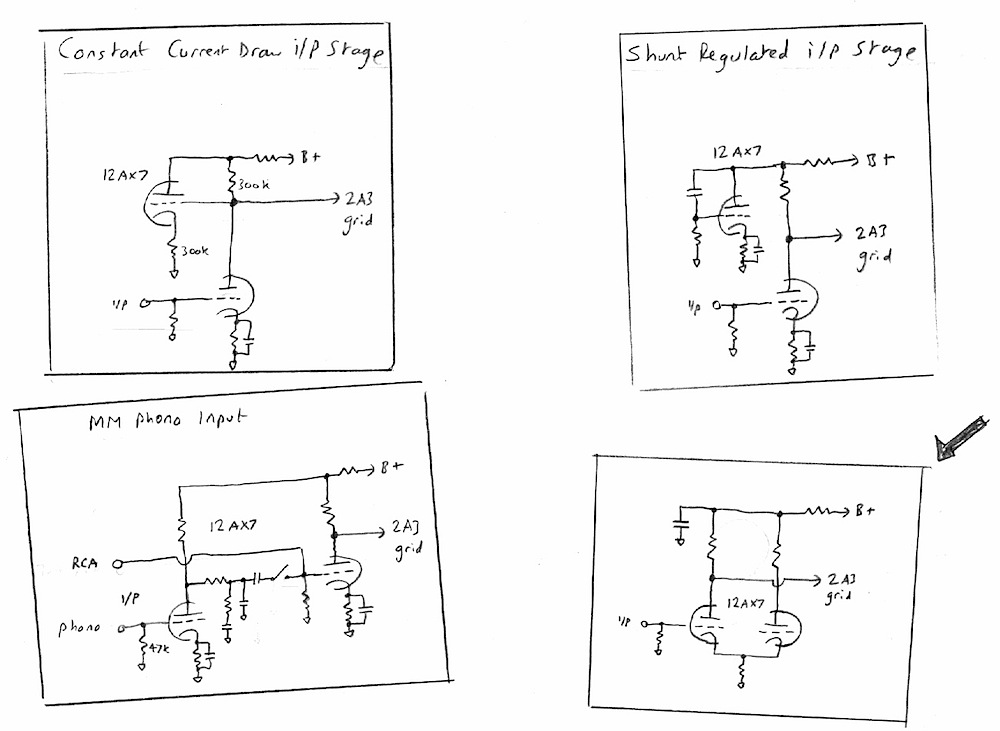 Constant Current Draw i/P Stage
12AX7
B+
300k
2A3
grid
300k
I/P
Shunt Regulated i/P Stage
12AX7
B+
2A3
grid
I/P
MM Phono Input
B+
12AX7
2A3
grid
RCA
I/P
Phono
47k
B+
2A3
grid
12AX7
I/P